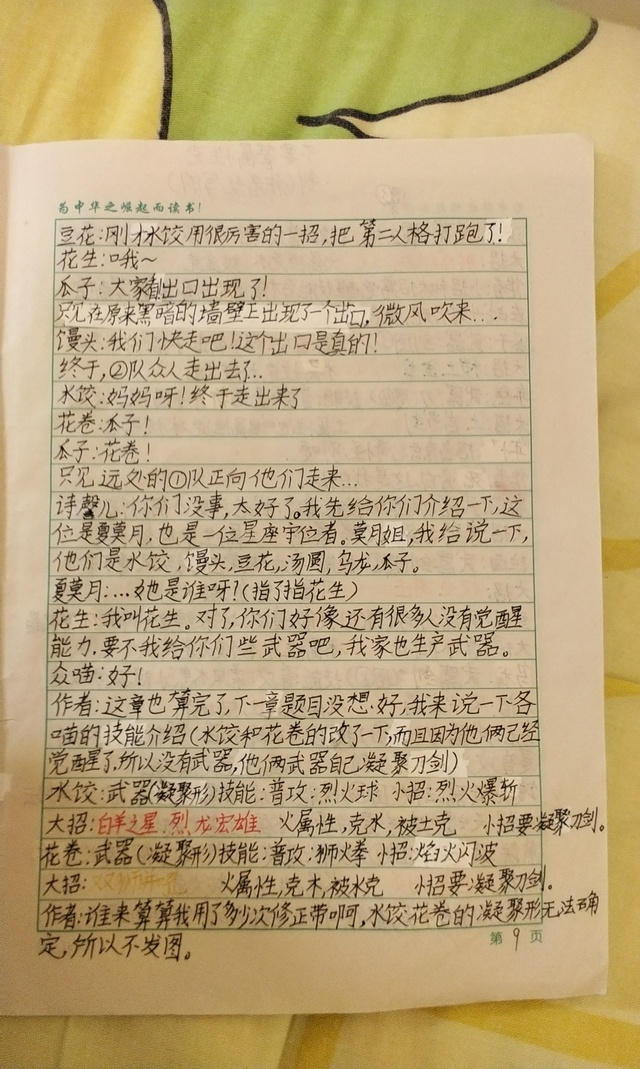 为中华之崛起而读书!
豆花:刚才水饺用很厉害的一招,把第二人格打跑了!
花生:哦~
瓜子:大家看出口出现了!
只见在原来黑暗的墙壁上出现了一个出口,微风吹来...
馒头:我们快走吧!这个出口是真的!
终于,②队众人走出去了...
水饺:妈妈呀!终于走出来了
花卷:瓜子!
瓜子:花卷!
只见远处的①队正向他们走来...
诗馨儿:你们没事,太好了。我先给你们介绍一下,这
位是夏莫月,也是一位星座守位者。莫月姐,我给说一下,
他们是水饺,馒头,豆花,汤圆,乌龙,瓜子。
夏莫月:...她也是谁呀!(指了指花生)
花生:我叫花生。对了,你们好像还有很多人没有觉醒
能力,要不我给你们些武器吧,我家也生产武器。
众喵:好!
作者:这章也算完了,下一章题目没想好,我来说一下各
喵的技能介绍(水饺和花卷的改了一下,而且因为他俩已经
觉醒了,所以没有武器,他俩武器自己凝聚刀剑)
水饺:武器(凝聚形)技能:普攻:烈火球 小招:烈火爆斩
大招:白羊之星 烈龙宏雄 火属性,克水,被土克 小招要凝聚刀剑。
花卷:武器(凝聚形)技能:普攻:狮火拳 小招:焰火闪波
大招: 火属性,克木,被水克 小招要凝聚刀剑.
作者:谁来算算我用了多少次修正带啊,水饺花卷的凝聚形无法确
定,所以不发图。
第9页